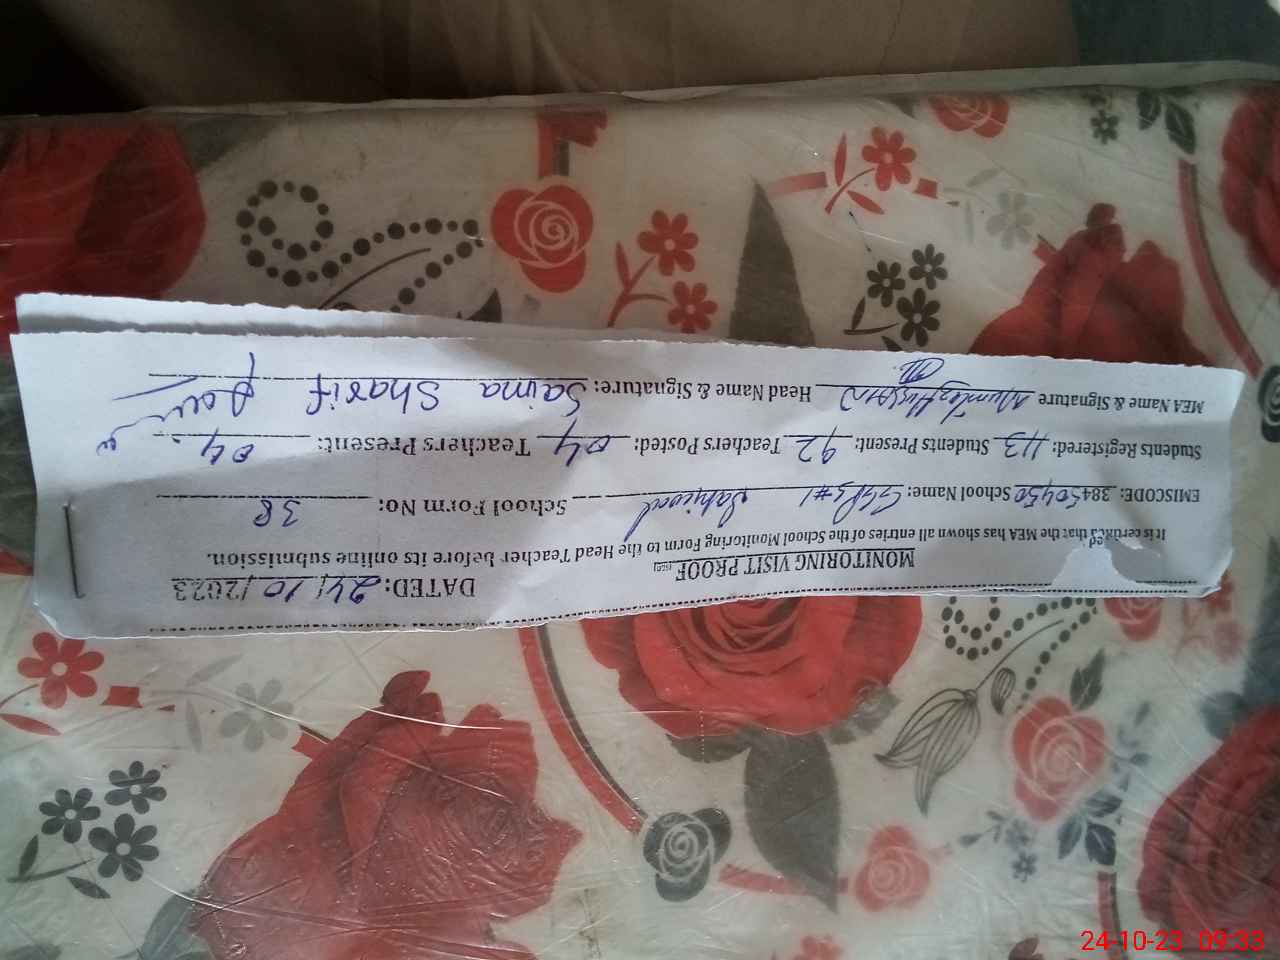 MONITORING VISIT PROOF
DATED: 24/10/2023
It is certified that the MEA has shown all entries of the School Monitoring Form to the Head Teacher before its online submission.
EMISCODE: 38450450 School Name: GGPS #1 School Form No: 38
Students Registered: 113 Students Present: 92 Teachers Posted: 04 Teachers Present: 04
MEA Name & Signature Mumtaz Hussain Head Name & Signature: Saima Sharif
24-10-23 09:33